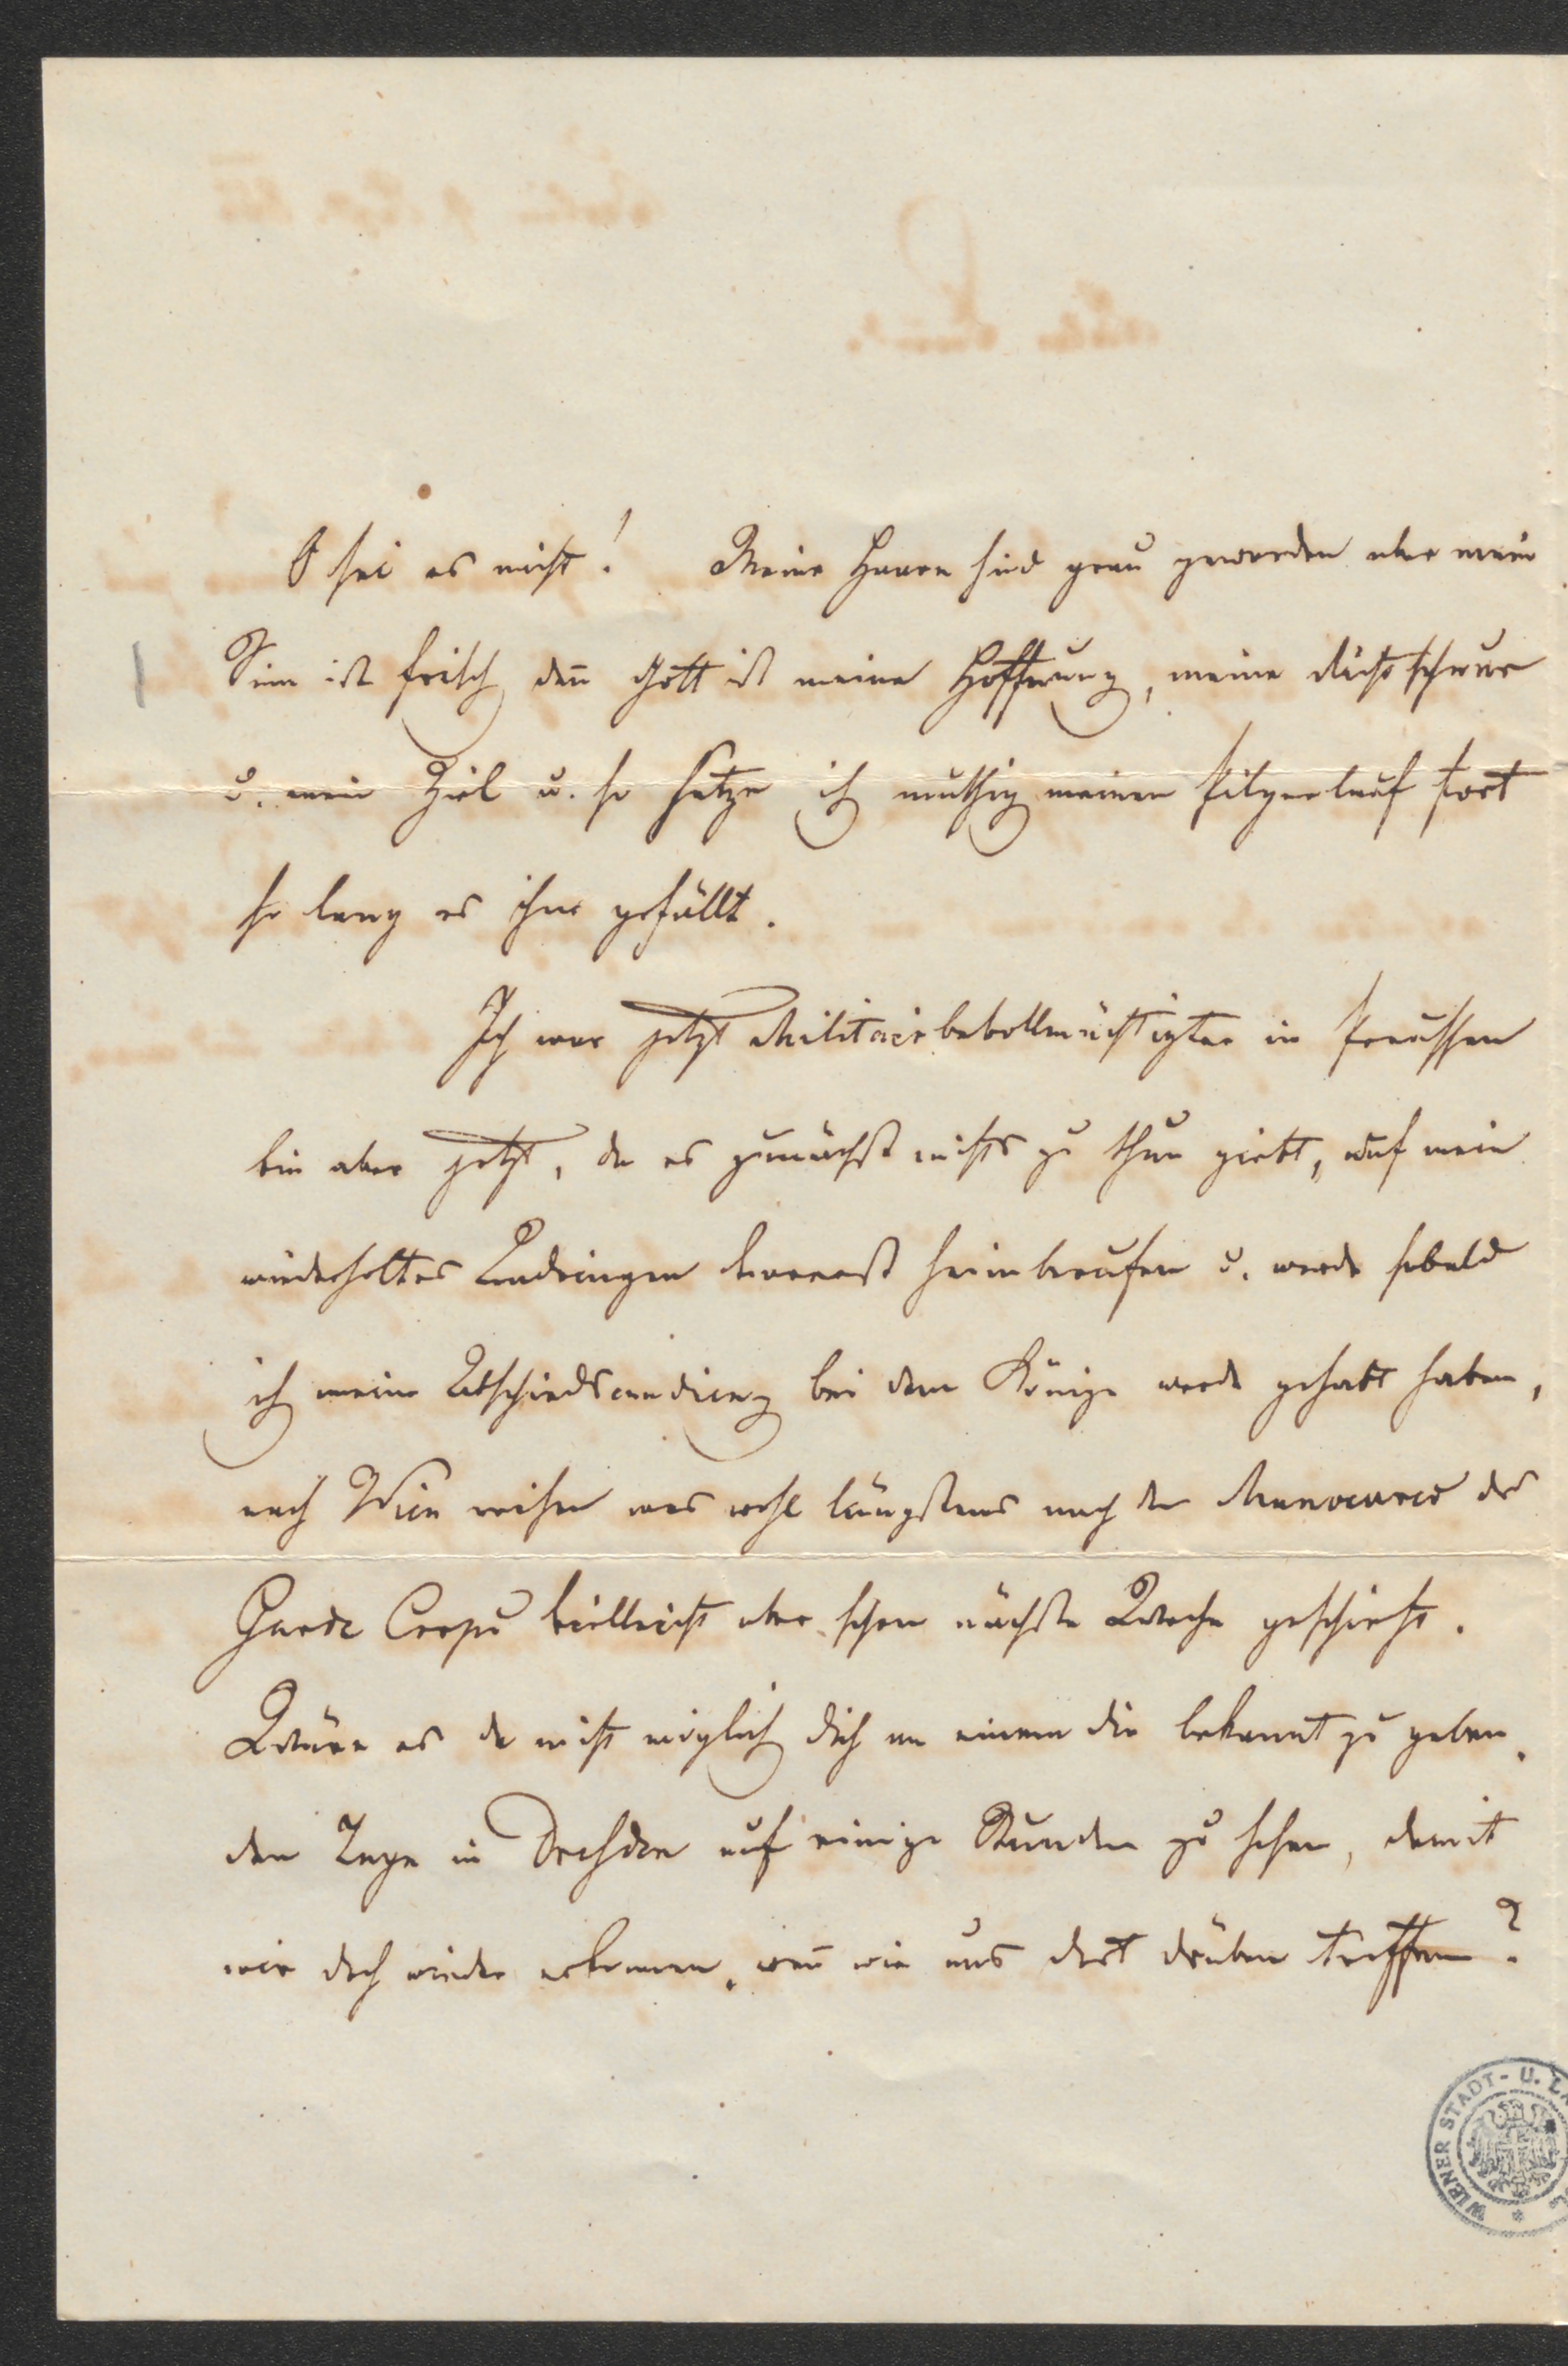 O sei es nicht! Meine Haare sind grau geworden aber mein
Sinn ist frisch, deñ Gott ist meine Hoffnung, meine Richtschnur
u. mein Ziel u. so setze ich muthig meinen Pilgerlauf fort
so lang es ihm gefällt.
Ich war jetzt Militairbevollmächtigter in Preussen
bin aber jetzt, da es zunächst nichts zu thun giebt, auf mein
wiederholtes Andringen vorerst heimberufen u. werde sobald
ich meine Abschiedsaudienz bei dem Könige werde gehabt haben,
nach Wien reisen was wohl längstens nach den Manoeuvres des
Garde Corps vielleicht aber schon nächste Woche geschieht.
Wäre es da nicht möglich dich an einem dir bekannt zu geben
den Tage in Dresden auf einige Stunden zu sehen, damit
wir doch wieder erkennen, weñ wir uns dort drüben treffen?
WIENER STADT- U. LA